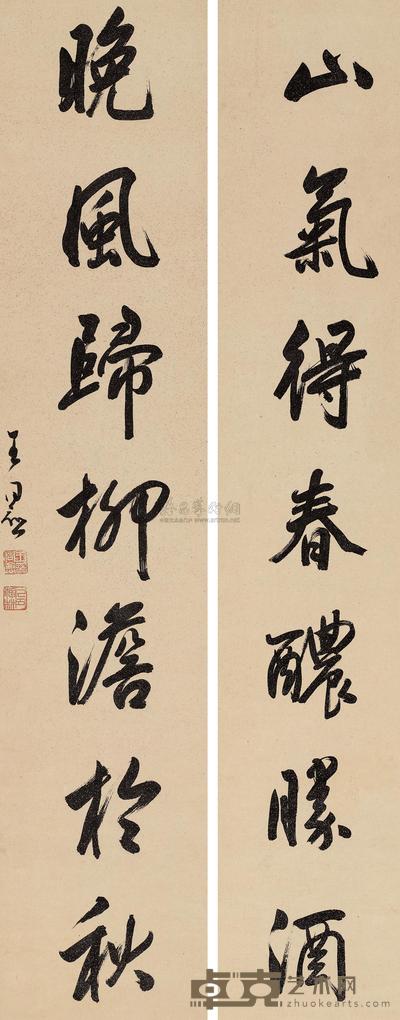 山氣得春醲勝酒
晚風歸柳澹於秋
王
卓克艺术网
zhuokearts.com